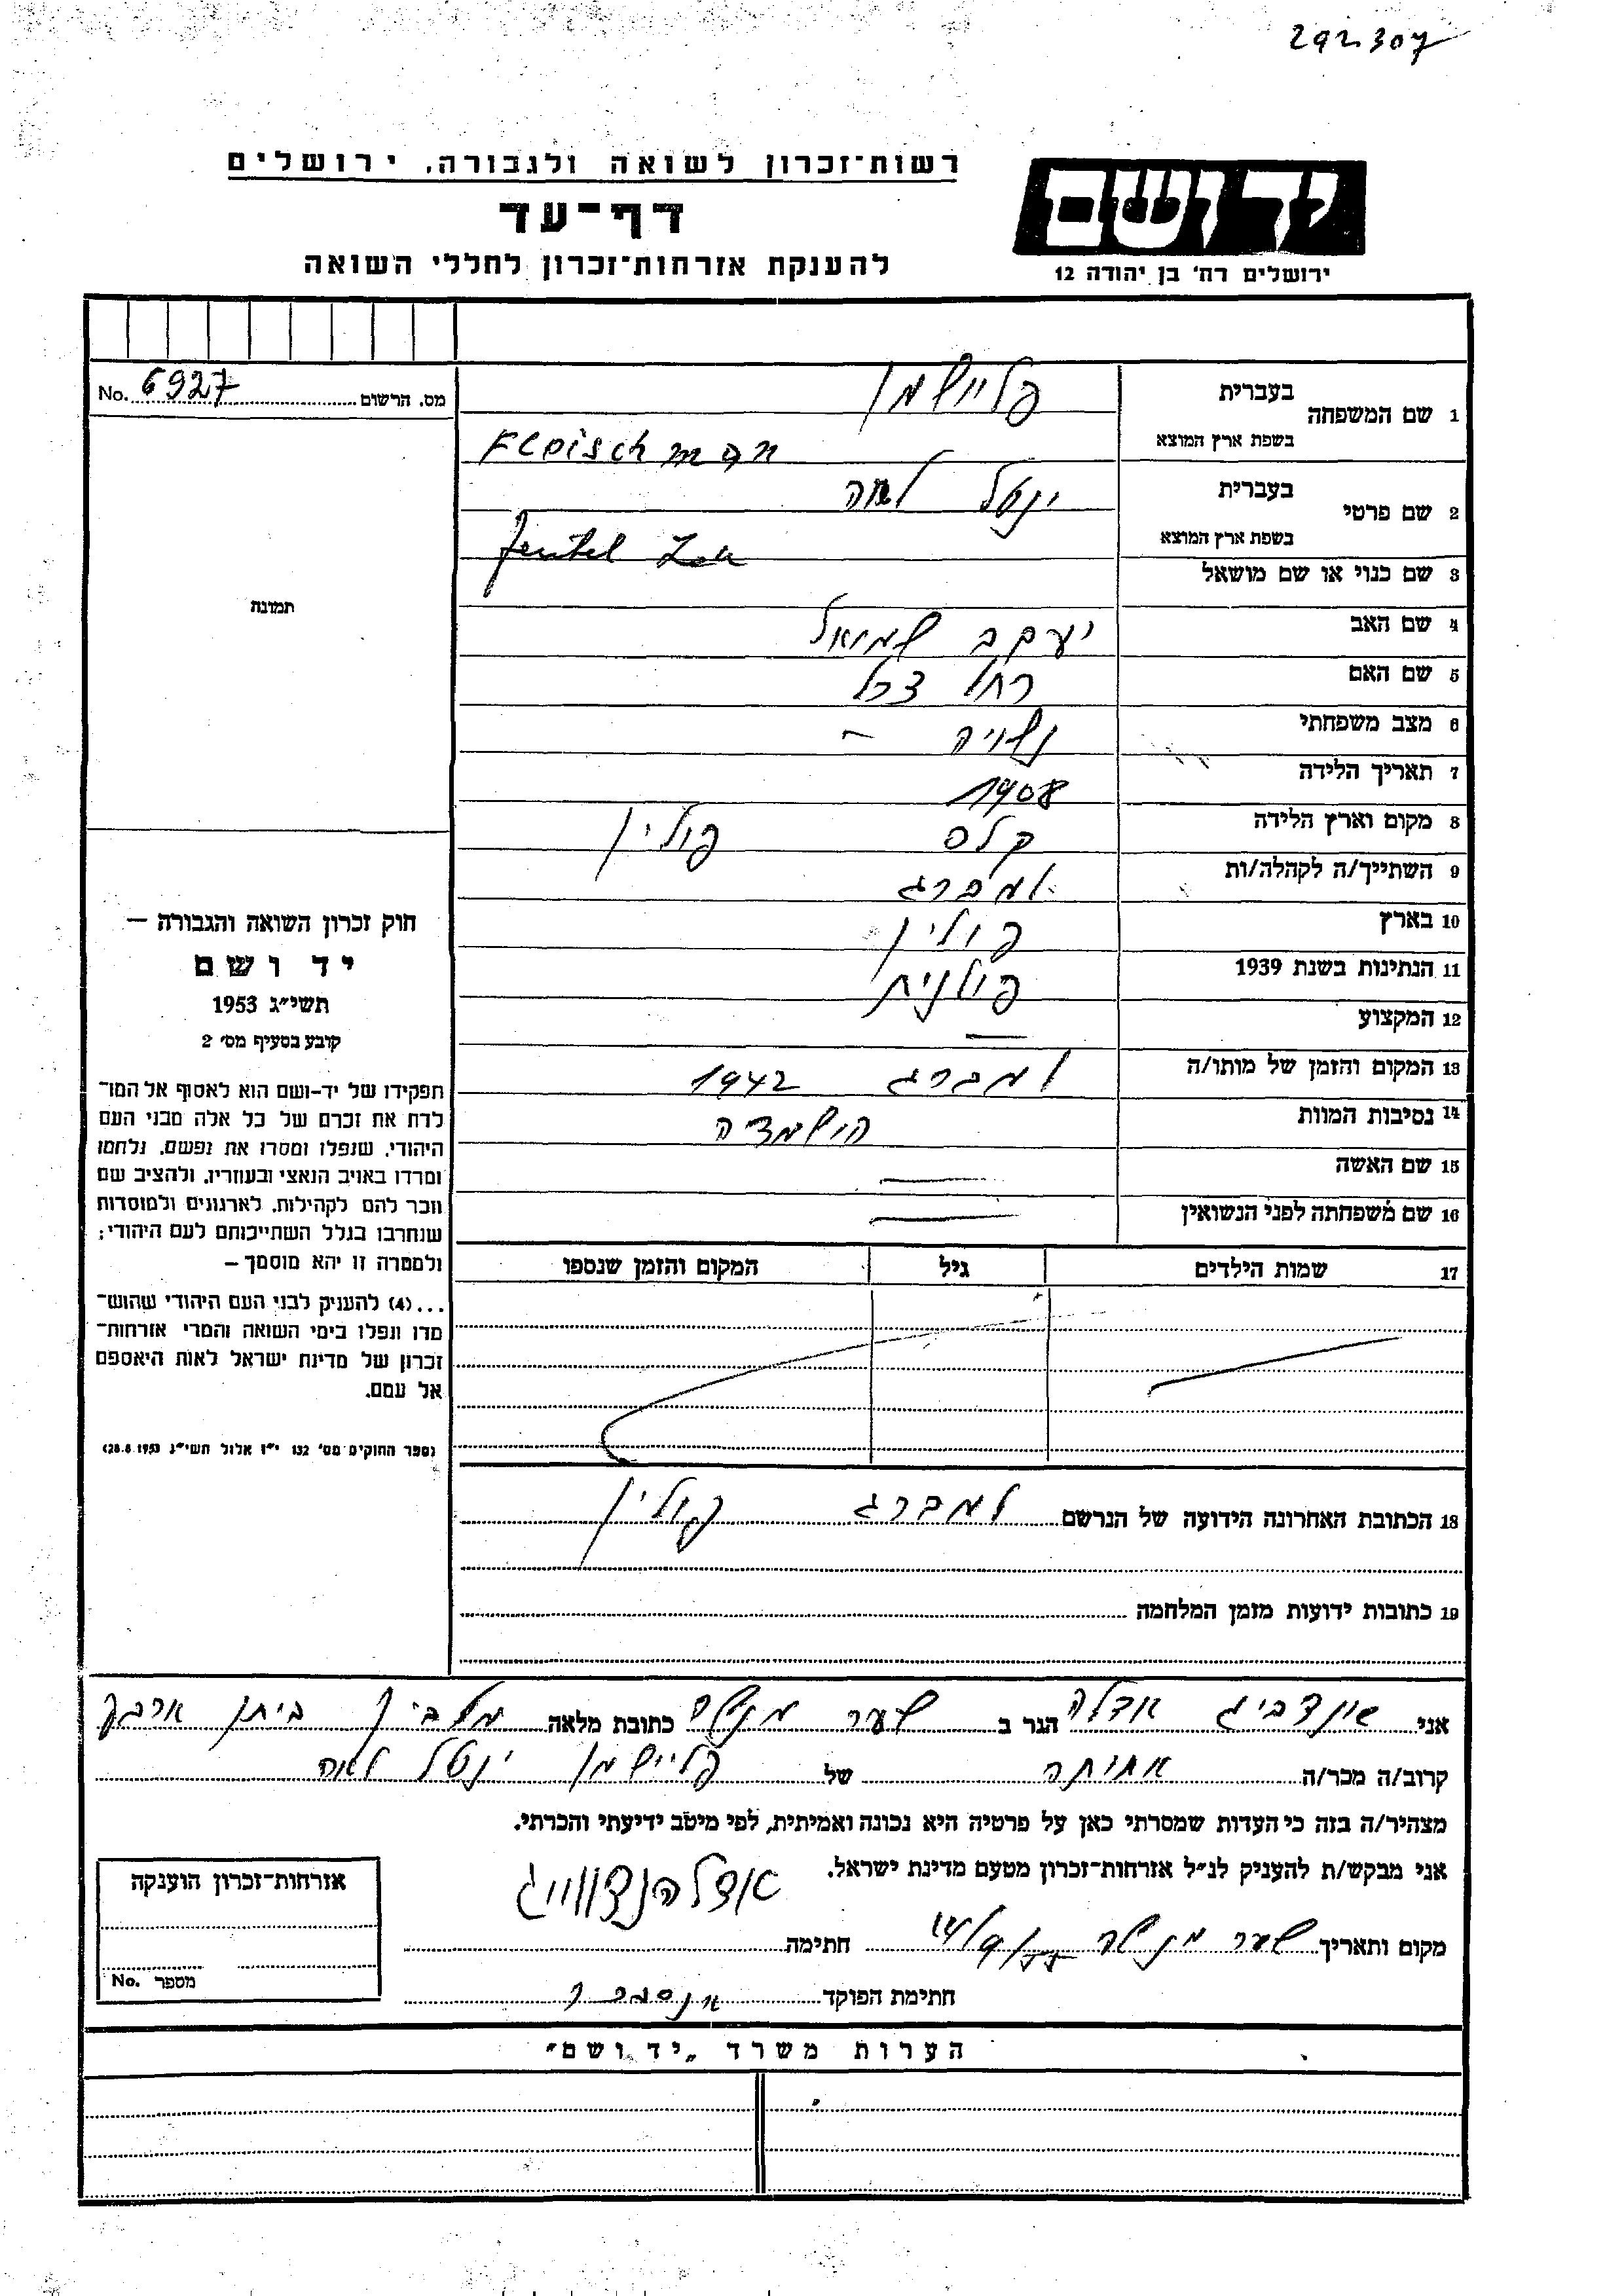 292307
רשות־זכרון לשואה ולגבורה, ירושלים
דף־עד
להענקת אזרחות־זכרון לחללי השואה
יד ושם
ירושלים רח' בן יהודה 12
No. 6927 מס. הרשום
תמונה
חוק זכרון השואה והגבורה —
יד ושם
תשי״ג 1953
קובע בסעיף מס׳ 2
תפקידו של יד-ושם הוא לאסוף אל המו־
לדת את זכרם של כל אלה מבני העם
היהודי, שנפלו ומסרו את נפשם, נלחמו
ומרדו באויב הנאצי ובעוזריו, ולהציב שם
וזכר להם לקהילות, לארגונים ולמוסדות
שנחרבו בגלל השתייכותם לעם היהודי;
ולמטרה זו יהא מוסמך —
...(4) להעניק לבני העם היהודי שהוש־
מדו ונפלו בימי השואה והמרי אזרחות־
זכרון של מדינת ישראל לאות היאספם
אל עמם.
(ספר החוקים מס׳ 132 י״ז אלול תשי״ג 28.8.1953)
1 שם המשפחה בעברית פליישמן
בשפת ארץ המוצא Fleischman
2 שם פרטי בעברית ינטל לאה
בשפת ארץ המוצא Jentel
3 שם כנוי או שם מושאל
4 שם האב יעקב שמואל
5 שם האם רחל
6 מצב משפחתי נשויה -
7 תאריך הלידה 1908
8 מקום וארץ הלידה פולין
9 השתייך/ה לקהלה/ות למברג
10 בארץ פולין
11 הנתינות בשנת 1939 פולנית
12 המקצוע —
13 המקום והזמן של מותו/ה למברג 1942
14 נסיבות המוות הושמדה
15 שם האשה —
16 שם משפחתה לפני הנשואין —
17 שמות הילדים גיל המקום והזמן שנספו
18 הכתובת האחרונה הידועה של הנרשם למברג פולין
19 כתובות ידועות מזמן המלחמה
אני אדלה הגר ב שער מנשה כתובת מלאה
קרוב/ה מכר/ה אחותה של פליישמן ינטל לאה
מצהיר/ה בזה כי העדות שמסרתי כאן על פרטיה היא נכונה ואמיתית, לפי מיטב ידיעתי והכרתי.
אני מבקש/ת להעניק לנ״ל אזרחות־זכרון מטעם מדינת ישראל.
מקום ותאריך שער מנשה חתימה
חתימת הפוקד
אזרחות־זכרון הוענקה
מספר No.
הערות משרד „יד ושם״